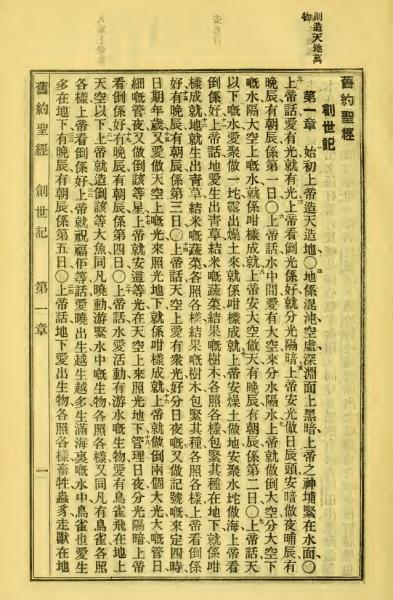 創造天地萬
物
舊約聖經
創世記
第一章　始初上帝造天造地〇地係混沌空虛深淵面上黑暗上帝之神埔緊在水面〇
上帝話愛有光就有光上帝看倒光係好就分光隔暗上帝安光做日辰頭安暗做夜晡辰有
晚辰有朝辰係第一日〇上帝話水中間愛有大空來分水隔水上帝就做倒大空分大空下
嘅水隔大空上嘅水就係咁樣成就上帝安大空做天有晚辰有朝辰係第二日〇上帝話天
以下嘅水愛聚做一坨緊出燥土來就係咁樣成就上帝安燥土做地安聚水坨做海上帝看
倒係好上帝話地愛生出青草結米嘅蔬菜結果嘅樹木各照各樣包緊其種在地下就係咁
樣成就地就生出青草結米嘅蔬菜各照各樣結果嘅樹木包緊其種各照各樣上帝看倒係
好有晚辰有朝辰係第三日〇上帝話天空上愛有衆光好分日夜嘅又做記號嘅來定四時
日期年歲又愛做天空上嘅光來照光地下就係咁樣成就上帝就做倒兩個大光大嘅管日
細嘅管夜又做倒該等星上帝就安這等光在天空上來照光地下管理日夜分光隔暗上帝
看倒係好有晚辰有朝辰係第四日〇上帝話水愛活動有游水嘅生物愛有鳥雀飛在地上
天空以下上帝就造倒該等大魚同凡曉動游緊水中嘅生物各照各樣又同凡有鳥雀各照
各樣上帝看倒係好上帝就祝福佢等話愛曉出生越生越多生滿海裏嘅水中鳥雀也愛生
多在地下有晚辰有朝辰係第五日〇上帝話地下愛出生物各照各樣畜牲蟲豸走獸在地
舊約聖經　創世記　第一章　一